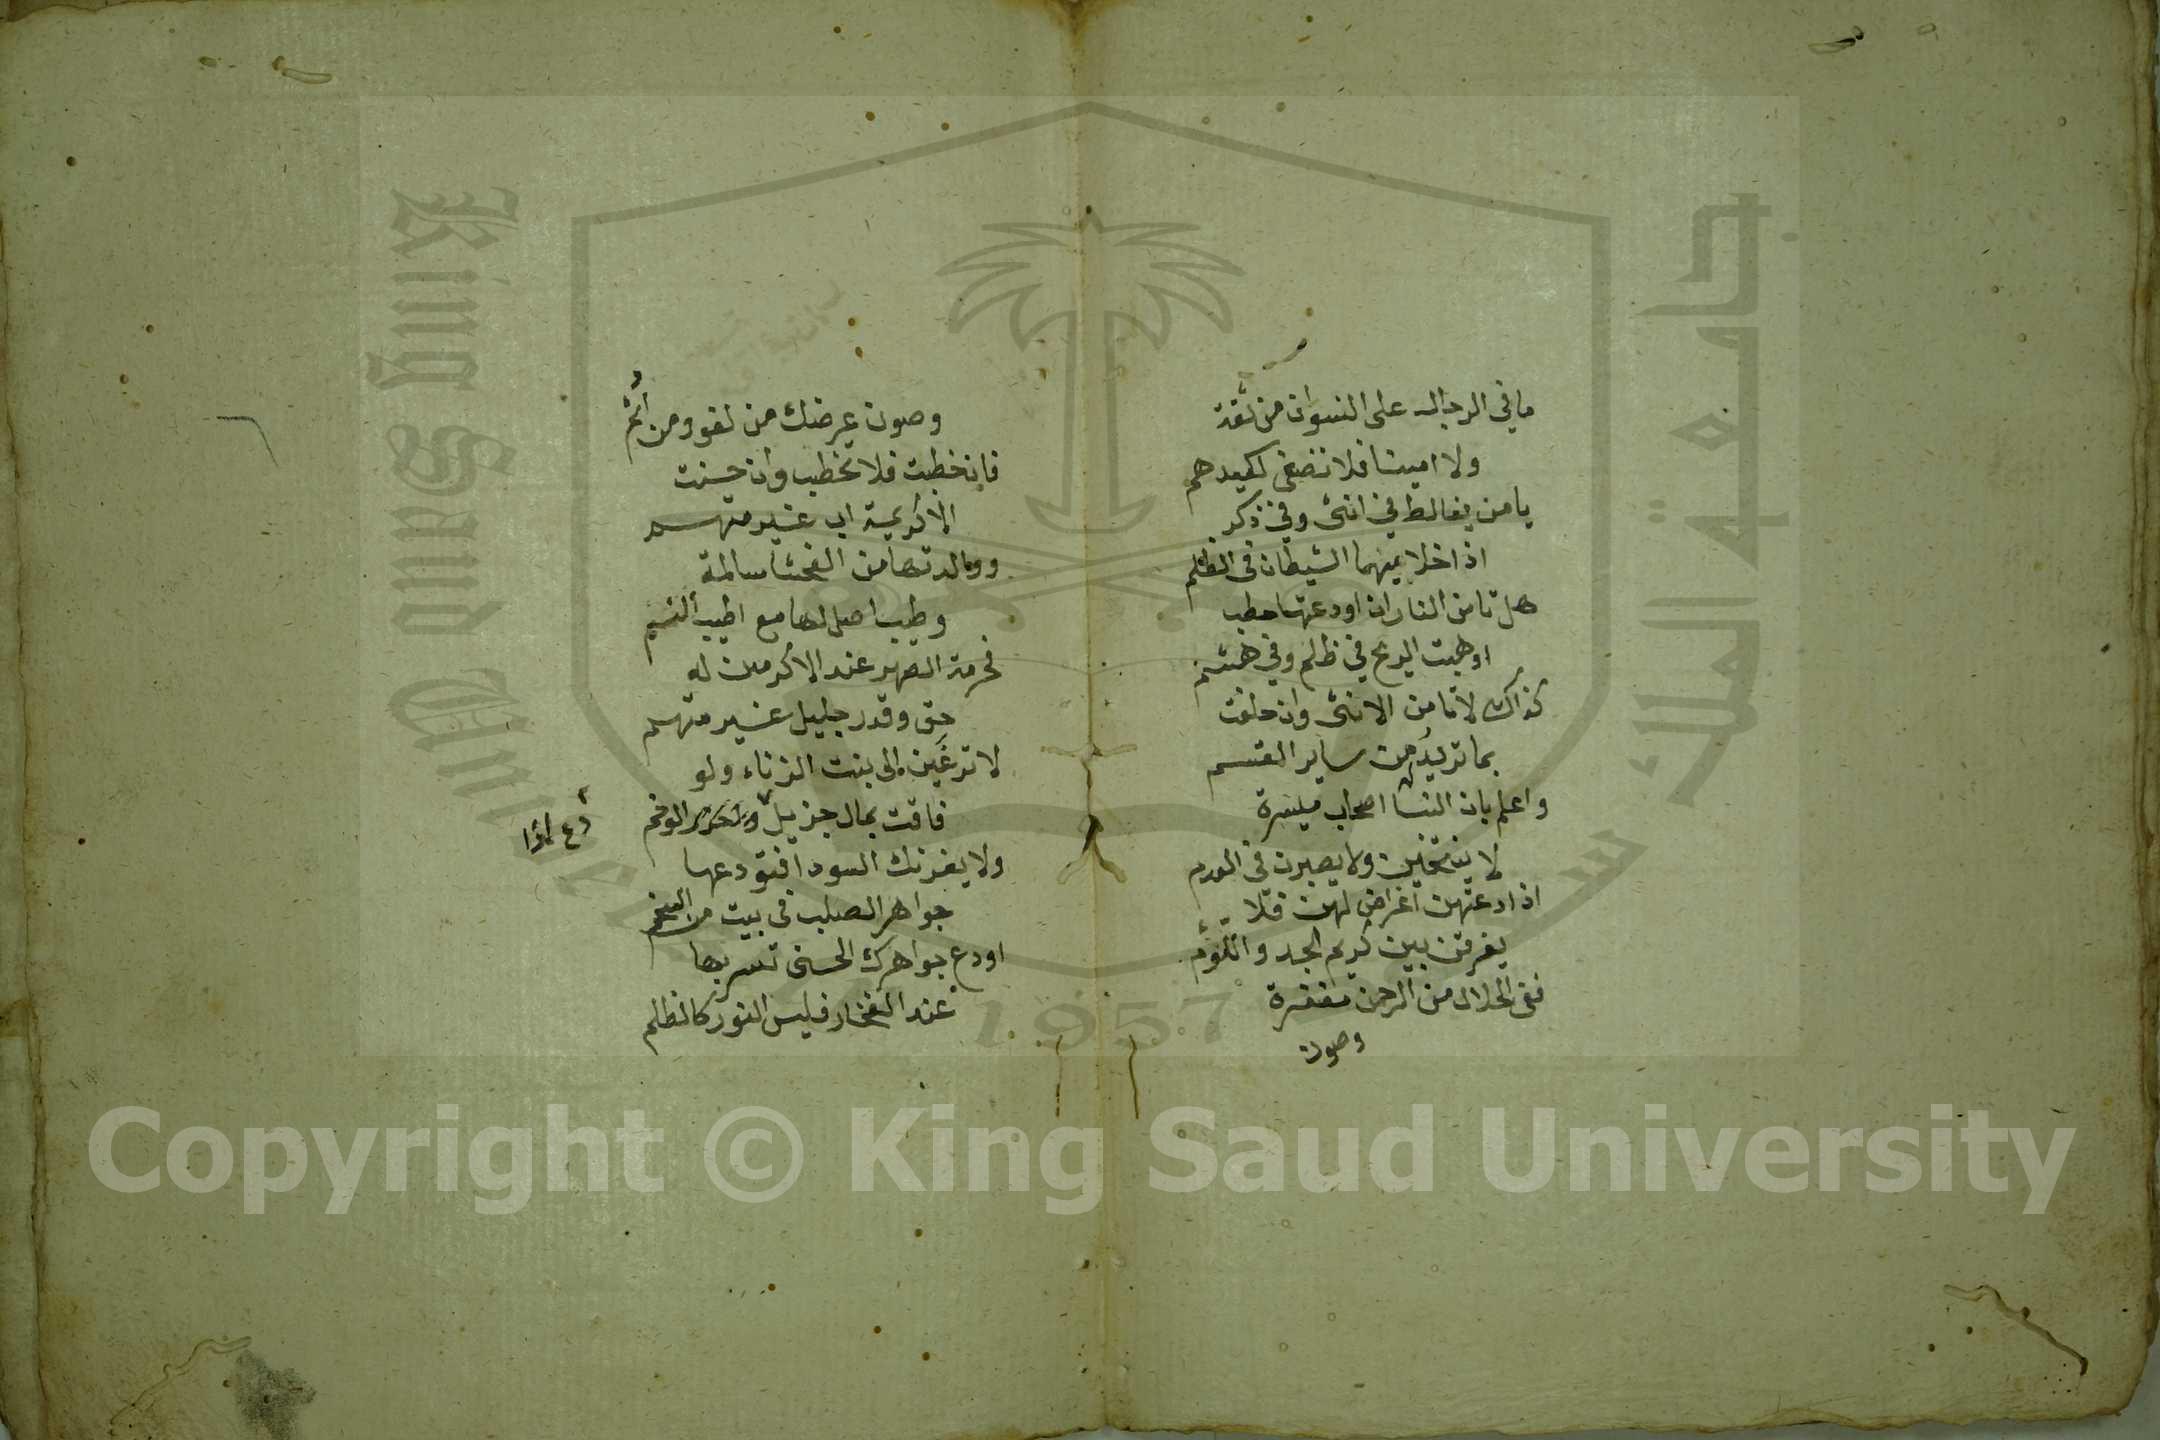 ما في الرجال على النسوان من ثقة
ولا امينا فلا تصغى لكيدهم
يا من يغالط في انثى وفي ذكر
اذا خلا بينهما الشيطان في الظلم
هل تامن النار ان اودعتها حطب
او هبت الريح في ظلم وفي
كذاك لا تامن الانثى وان حلفت
بما تريد من ساير القسم
واعلم بان النسا اصحاب ميسرة
لا ينتخين ولا يصبرن في
اذا دعتهن اغراض لهن فلا
يفرقن بين كريم الجد واللوم
ففي الحلال من الرحمن مغفرة
وصون
وصون عرضك من لغو ومن اثم
فان خطبت فلا تخطب وان حسنت
الا كريمة اب غير متهم
ووالدتها من الفحشا سالمة
وطيب اصل لها مع اطيب الشيم
فحرمة الصهر عند الاكرمين له
حق وقدر جليل غير متهم
لا ترغبن الى بنت الزناء ولو
فاقت بمال جزيل الوخم
دع
ولا يغرنك السودا فتودعها
جواهر الصلب في بيت من
اودع جواهرك الحسنى تسر بها
عند الفخار فليس النور كالظلم
جامعة الملك سعود
King Saud University
1957
Copyright © King Saud University